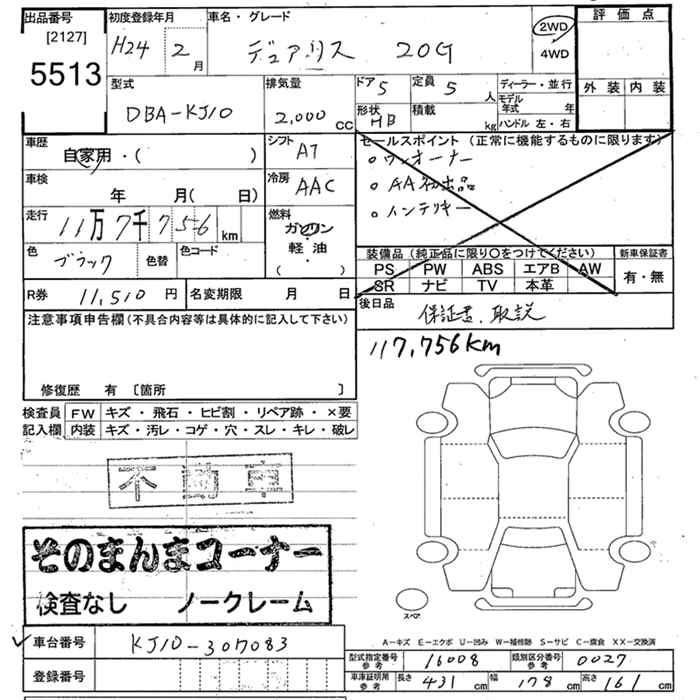 出品番号
[2127]
5513
初度登録年月
H24 2月
車名・グレード
デュアリス 20G
2WD
4WD
評価点
外装 内装
型式
DBA-KJ10
排気量
2,000 CC
ドア 5
定員 5 人
形状 HB
積載 kg
ディーラー・並行
モデル年式 年
ハンドル 左・右
車歴
自家用・( )
シフト AT
車検
年 月( 日)
冷房 AAC
走行
11万7千756 km
燃料
ガソリン
軽油
( )
色
ブラック
色替
色コード
セールスポイント (正常に機能するものに限ります)
○ワンオーナー
○AA初出品
○インテリキー
装備品 (純正品に限り○をつけてください)
PS PW ABS エアB AW
SR ナビ TV 本革
新車保証書
有・無
R券 11,510円
名変期限 月 日
後日品
保証書、取説
注意事項申告欄(不具合内容等は具体的に記入して下さい)
117,756km
修復歴 有 〔箇所 〕
検査員記入欄
FW キズ・飛石・ヒビ割・リペア跡・×要
内装 キズ・汚レ・コゲ・穴・スレ・キレ・破レ
不動車
そのまんまコーナー
検査なし ノークレーム
スペア
車台番号 KJ10-307083
登録番号
A-キズ E-エクボ U-凹み W-補修跡 S-サビ C-腐食 XX-交換済
型式指定番号 参考 16008
類別区分番号 参考 0027
車庫証明用 参考
長さ 431 cm
幅 178 cm
高さ 161 cm